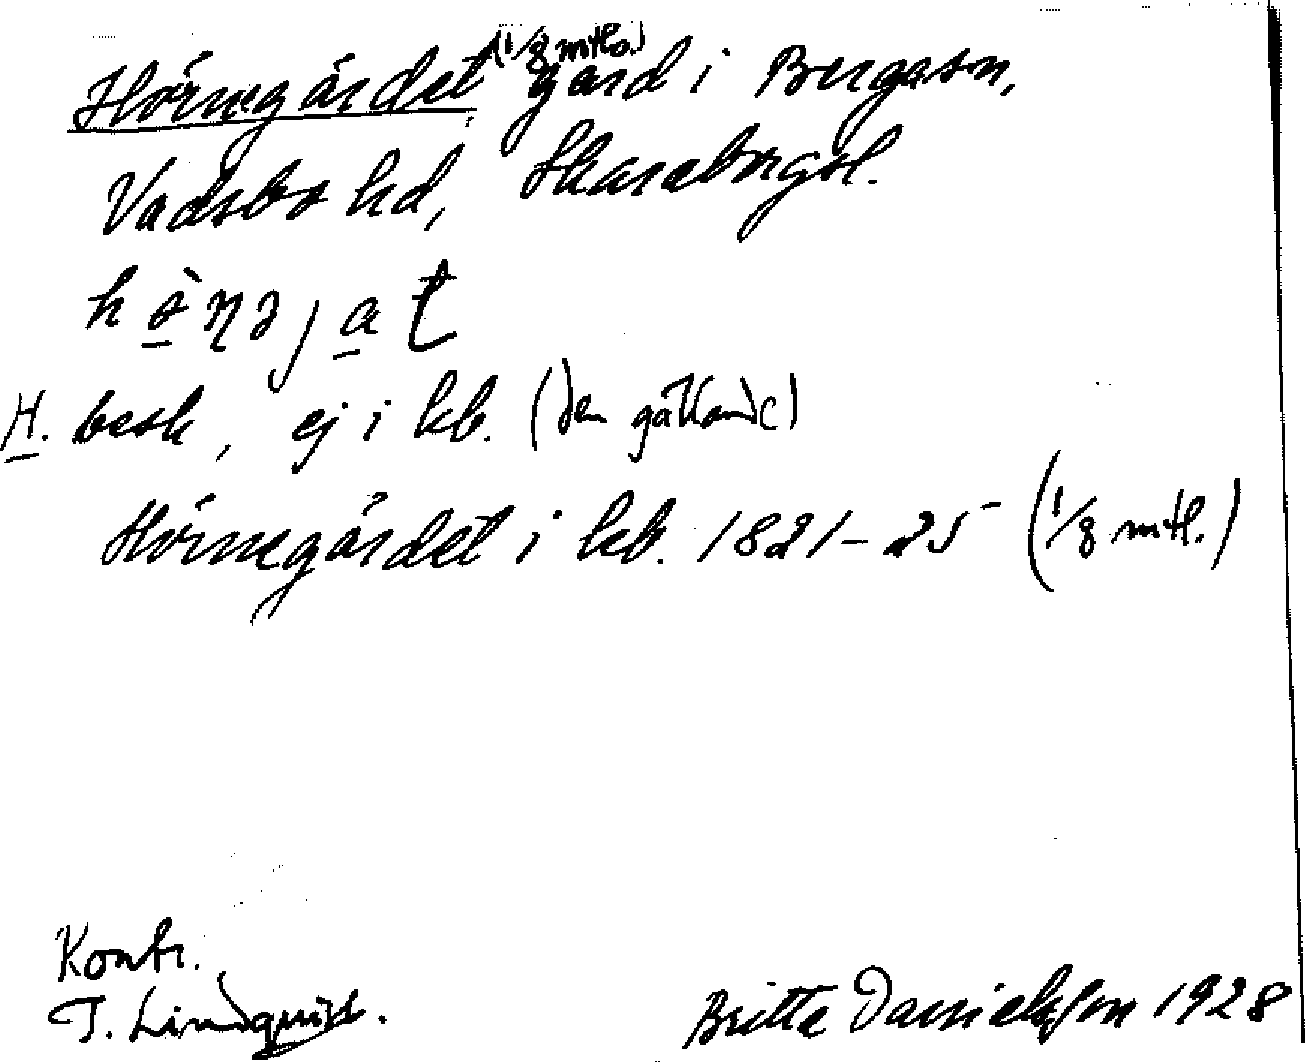 Hörnegärdet (1/8 mtl.) gård i Bergasn,
Vadsbo hd, Skaraborgsl.
H. besk, ej i kb. (den gällande)
Hörnegärdet i kb. 1821-25 (1/8 mtl.)
Kontr.
T. Lindquist.
Britta Danielsson 1928